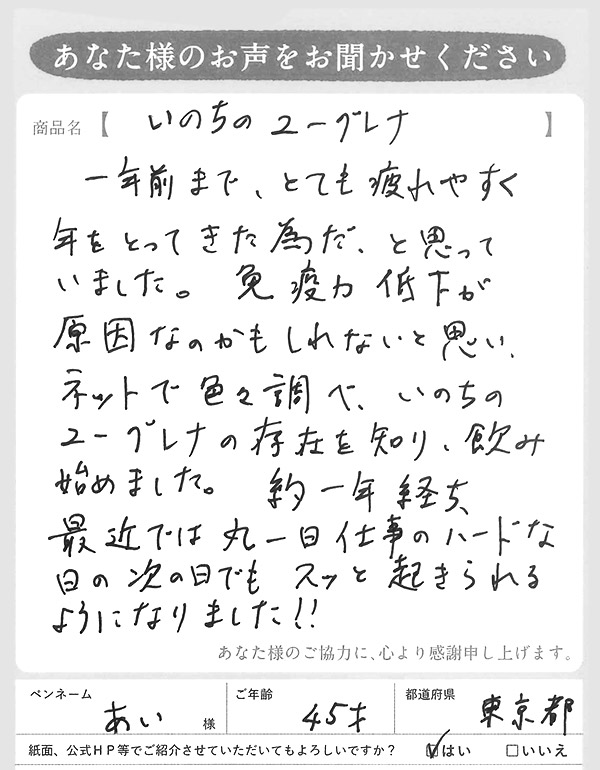 あなた様のお声をお聞かせください
商品名【 いのちのユーグレナ 】
一年前まで、とても疲れやすく
年をとってきた為だ、と思って
いました。免疫力低下が
原因なのかもしれないと思い、
ネットで色々調べ、いのちの
ユーグレナの存在を知り、飲み
始めました。約一年経ち、
最近では丸一日仕事のハードな
日の次の日でもスッと起きられる
ようになりました!!
あなた様のご協力に、心より感謝申し上げます。
ペンネーム あい 様 ご年齢 45才 都道府県 東京都
紙面、公式HP等でご紹介させていただいてもよろしいですか? ☑はい □いいえ